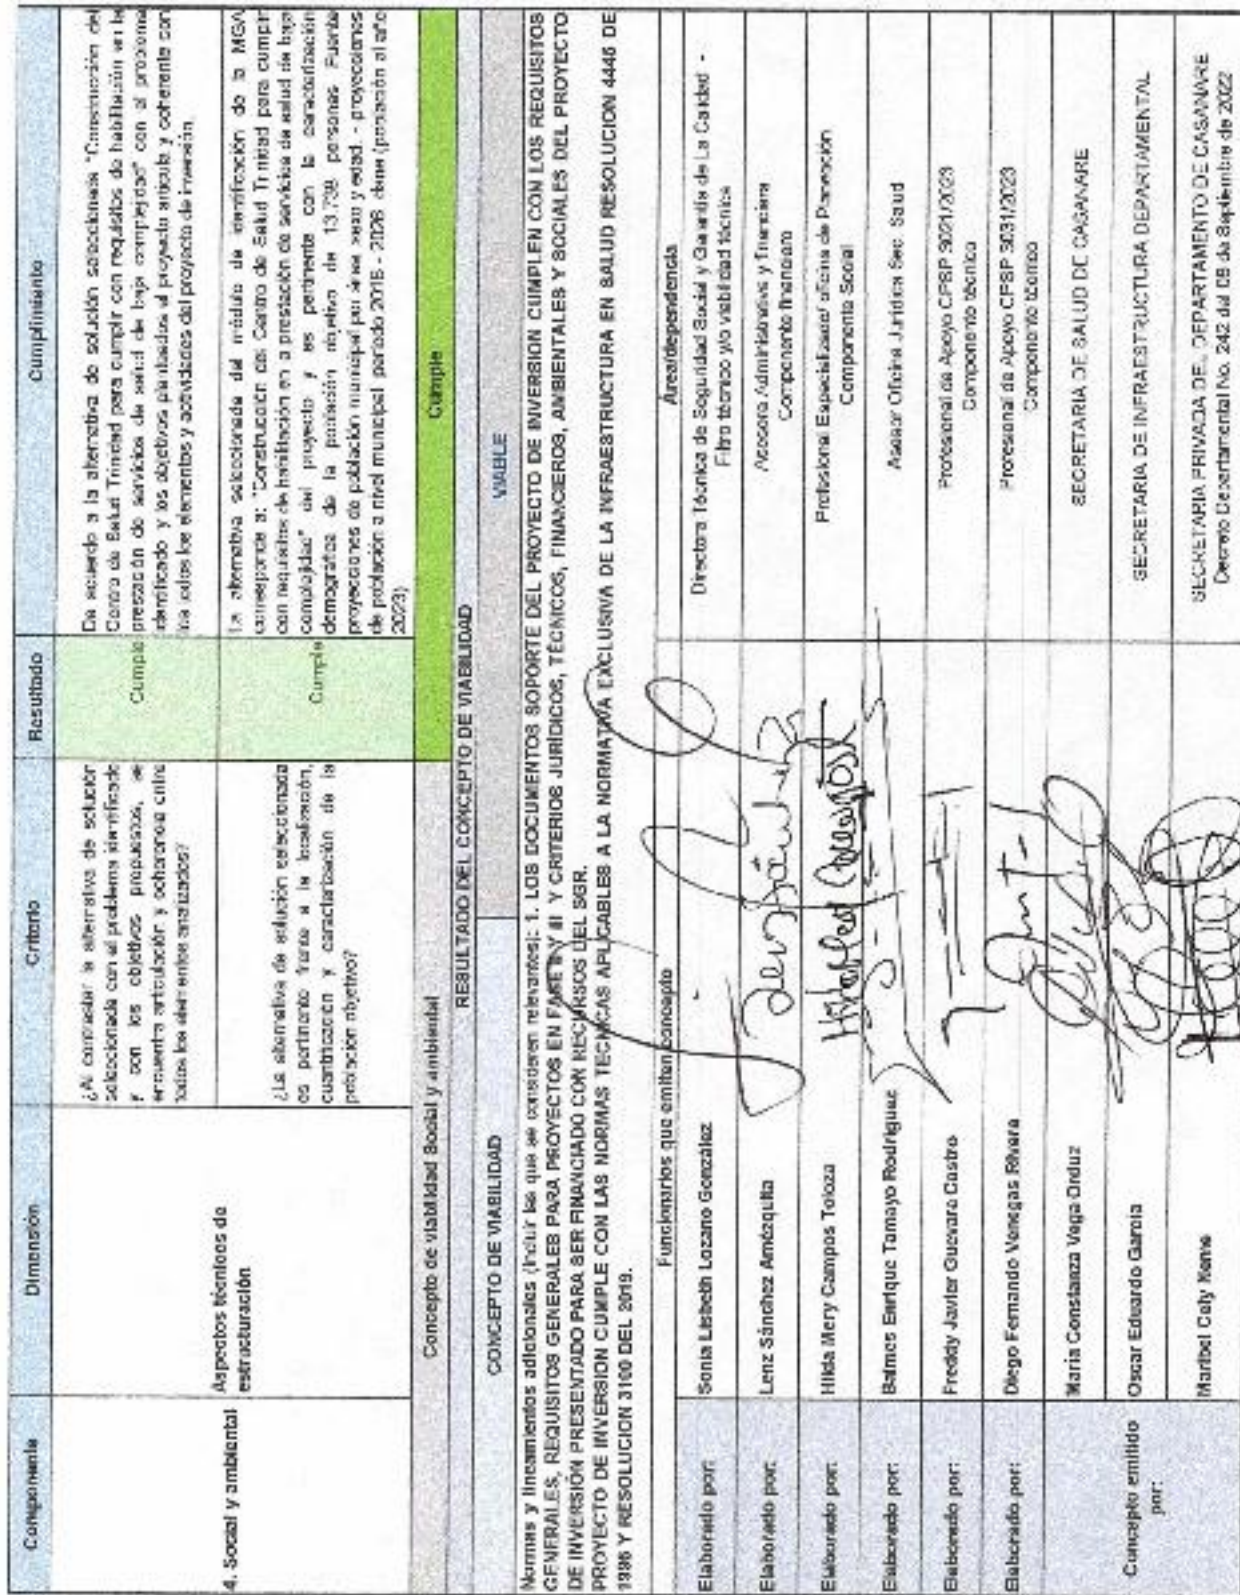 Componente Dimensión Criterio Resultado Cumplimiento
4. Social y ambiental
Aspectos técnicos de
estructuración
¿Al contrastar la alternativa de solución
seleccionada con el problema identificado
y con los objetivos propuestos, se
encuentra articulación y coherencia entre
todos los elementos analizados?
Cumple
De acuerdo a la alternativa de solución seleccionada "Construcción del
Centro de Salud Trinidad para cumplir con requisitos de habilitación en la
prestación de servicios de salud de baja complejidad" con el problema
identificado y los objetivos planteados el proyecto articula y coherente con
los todos los elementos y actividades del proyecto de inversión.
¿La alternativa de solución seleccionada
es pertinente frente a la localización,
cuantificación y caracterización de la
población objetivo?
Cumple
La alternativa seleccionada del módulo de identificación de la MGA
corresponde a: "Construcción del Centro de Salud Trinidad para cumplir
con requisitos de habilitación en a prestación de servicios de salud de baja
complejidad" del proyecto y es pertinente con la caracterización
demográfica de la población objetivo de 13,738 personas Fuente
proyecciones de población municipal por área sexo y edad. - proyecciones
de población a nivel municipal periodo 2018 - 2026 (población al año
2023)
Concepto de viabilidad Social y ambiental Cumple
RESULTADO DEL CONCEPTO DE VIABILIDAD
CONCEPTO DE VIABILIDAD VIABLE
Normas y lineamientos adicionales (Incluir las que se consideren relevantes): 1. LOS DOCUMENTOS SOPORTE DEL PROYECTO DE INVERSION CUMPLEN CON LOS REQUISITOS
GENERALES, REQUISITOS GENERALES PARA PROYECTOS EN FASE II Y III Y CRITERIOS JURÍDICOS, TÉCNICOS, FINANCIEROS, AMBIENTALES Y SOCIALES DEL PROYECTO
DE INVERSIÓN PRESENTADO PARA SER FINANCIADO CON RECURSOS DEL SGR.
PROYECTO DE INVERSION CUMPLE CON LAS NORMAS TECNICAS APLICABLES A LA NORMATIVA EXCLUSIVA DE LA INFRAESTRUCTURA EN SALUD RESOLUCION 4445 DE
1996 Y RESOLUCION 3100 DEL 2019.
Funcionarios que emiten concepto Area/dependencia
Elaborado por: Sonia Lisbeth Lozano González
Directora Técnica de Seguridad Social y Garantía de La Calidad -
Filtro técnico y/o viabilidad técnica
Elaborado por: Lenz Sánchez Amézquita
Asesora Administrativa y financiera
Componente financiero
Elaborado por: Hilda Mery Campos Toloza
Profesional Especializado/ oficina de Planeación
Componente Social
Elaborado por: Balmes Enrique Tamayo Rodriguez Asesor Oficina Jurídica Sec. Salud
Elaborado por: Freddy Javier Guevara Castro
Profesional de Apoyo CPSP 3021/2023
Componente técnico
Elaborado por: Diego Fernando Venegas Rivera
Profesional de Apoyo CPSP 3031/2023
Componente técnico
Concepto emitido
por:
Maria Constanza Vega Orduz SECRETARIA DE SALUD DE CASANARE
Oscar Eduardo Garcia SECRETARIA DE INFRAESTRUCTURA DEPARTAMENTAL
Maribel Cely
SECRETARIA PRIVADA DEL DEPARTAMENTO DE CASANARE
Decreto Departamental No. 242 del 08 de Septiembre de 2022